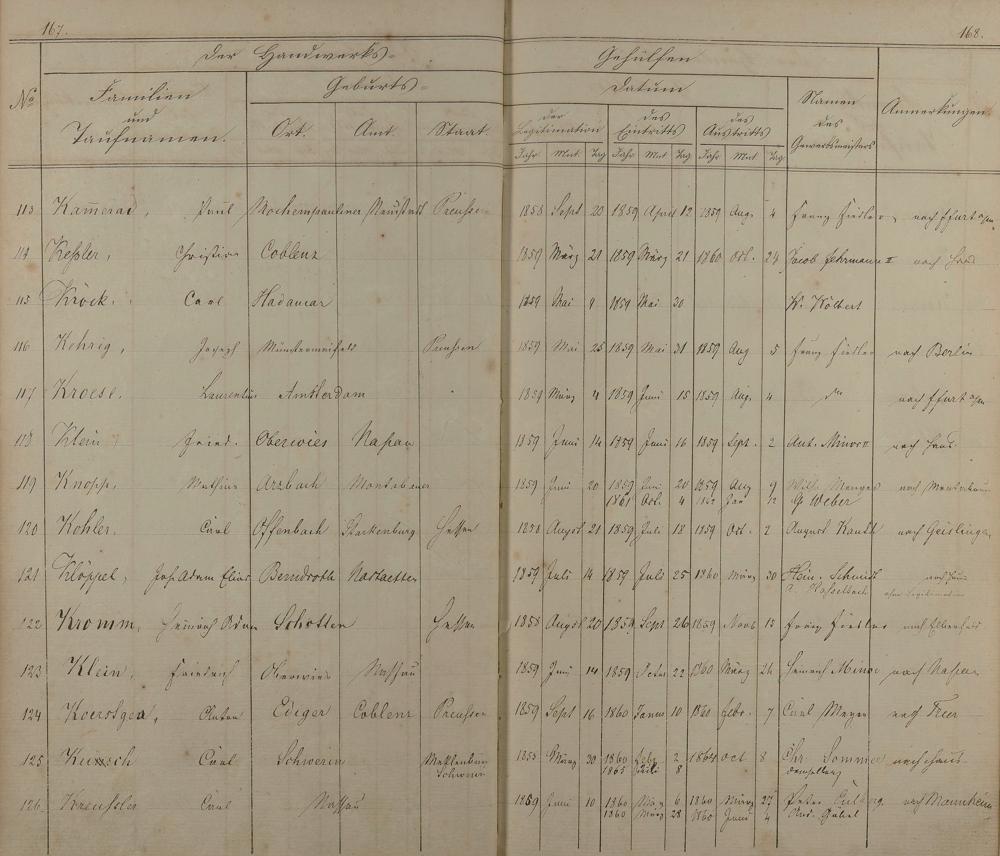 167.
168.
Der Handwerks-
Gehülfen
No
Familien
und
Taufnamen.
Geburts-
Ort.
Amt.
Staat.
Datum
der
Legitimation
des
Eintritts
des
Austritts
Namen
des
Gewerbsmeisters
Anmerkungen
Jahr Mnt. Tag Jahr Mnt Tag Jahr Mnt Tag
113 Kam̅erad, Paul Neustadt Preussen 1858 Sept 20 1859 April 12 1859 Aug. 4 Franz Fiedler, nach Ffurt a/m
114 Keßler, Christian Coblenz 1859 März 21 1859 März 21 1860 Oct. 24 Jacob Fehrmann II nach Haus
115 Kröck. Carl Hadamar 1859 Mai 9 1859 Mai 20 W. Kölbert
116 Kehrig, Joseph Münstermeifeld Preussen 1859 Mai 25 1859 Mai 31 1859 Aug 5 Franz Fiedler nach Berlin
117 Kroese. Laurentius Amsterdam 1859 März 4 1859 Juni 15 1859 Aug. 4 nach Ffurt a/m
118 Klein Fried. Oberwies Naßau 1859 Juni 14 1859 Juni 16 1859 Sept. 2 Ant. Minor II nach Haus
119 Knopp. Mathias Arzbach Montabaur 1859 Juni 20 1859 Juni 20 1859 Aug 9 Wilh. Menges nach Montabaur
1861 Oct. 4 1862 Jan 12 G Weber
120 Kohler. Carl Offenbach Starkenburg Hessen 1858 August 21 1859 Juli 18 1859 Oct. 2 August Kauth nach Geislingen
121 Klöppel, Joh. Adam Elias Berndroth Nastaetten 1859 Juli 14 1859 Juli 25 1860 März 30 Hein. Schmidt nach Haus
v. Hasselbach ohne Legitimation
122 Kromm, Heinrich Adam Schotten Hessen 1858 August 20 1859 Sept 26 1859 Novb 15 Franz Fiedler nach Elberfeld
123 Klein, Friedrich Oberwies Naßau 1859 Juni 14 1859 Octor 22 1860 März 24 Heinrich Minor nach Naßau
124 Anton Ediger Coblenz Preussen 1859 Sept 16 1860 Januar 10 1860 Febr. 7 Carl Mayer nach Trier
125 Carl Schwerin Meklenburg 1858 März 30 1860 Feb. 2 1864 Oct 8 Chr. Sommer nach Haus
Schwerin 1865 Juli 8 derselbe
126 Kreussler Carl Naßau 1859 Juni 10 1860 März 6 1860 März 27 Peter nach Mannheim
1860 März 28 1860 Juni 4 And. Gabel